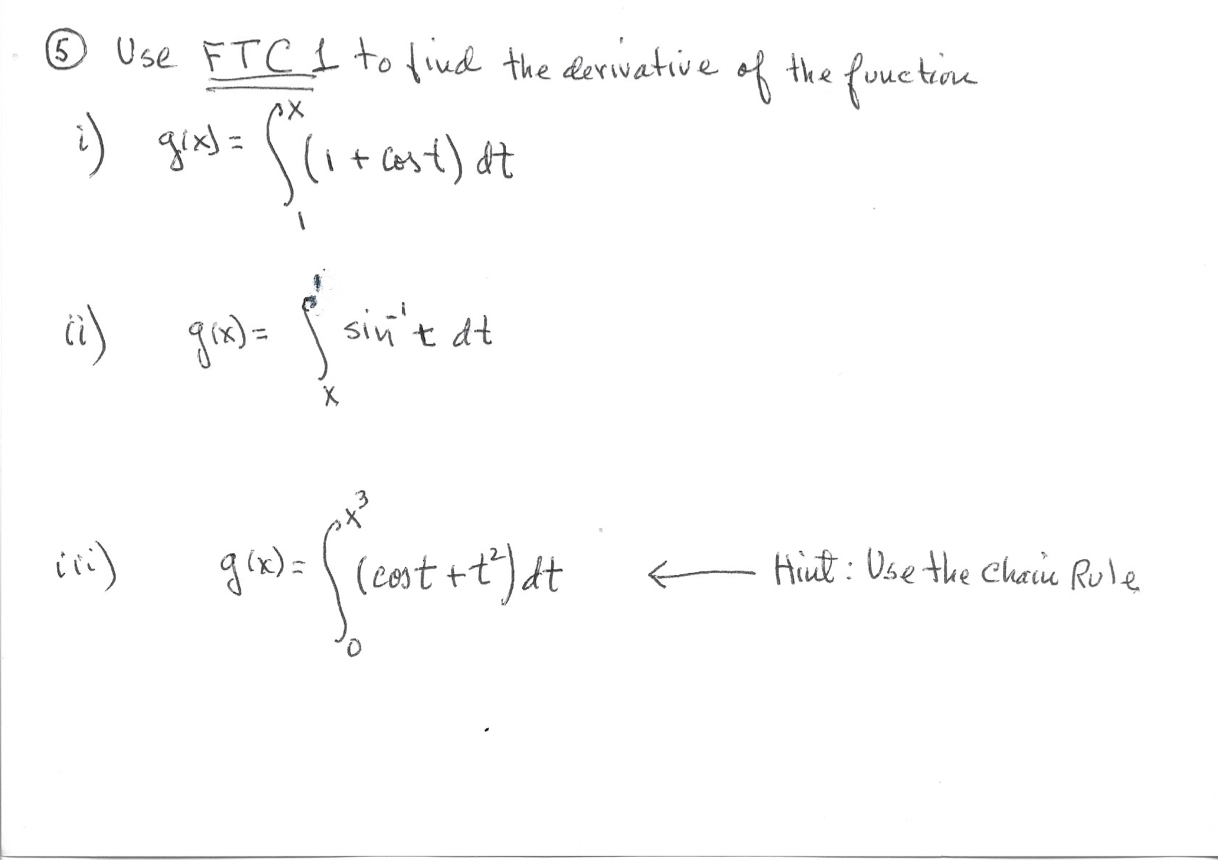 ⑤ Use FTC 1 to find the derivative of the function
i) g(x) = ∫₁ˣ (1 + cos t) dt
ii) g(x) = ∫ₓ¹ sin⁻¹t dt
iii) g(x) = ∫₀^x³ (cost + t²) dt ← Hint : Use the Chain Rule